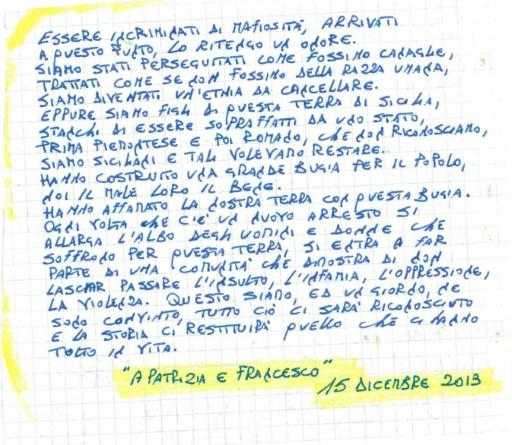 ESSERE INCRIMINATI DI MAFIOSITÀ, ARRIVATI
A QUESTO PUNTO, LO RITENGO UN ONORE.
SIAMO STATI PERSEGUITATI COME FOSSIMO CANAGLIE,
TRATTATI COME SE NON FOSSIMO DELLA RAZZA UMANA,
SIAMO DIVENTATI UN'ETNIA DA CANCELLARE.
EPPURE SIAMO FIGLI DI QUESTA TERRA DI SICILIA,
STANCHI DI ESSERE SOPRAFFATTI DA UNO STATO,
PRIMA PIEMONTESE E POI ROMANO, CHE NON RICONOSCIAMO,
SIAMO SICILIANI E TALI VOLEVAMO RESTARE.
HANNO COSTRUITO UNA GRANDE BUGIA PER IL POPOLO,
NOI IL MALE LORO IL BENE.
HANNO AFFAMATO LA NOSTRA TERRA CON QUESTA BUGIA.
OGNI VOLTA CHE C'E' UN NUOVO ARRESTO SI
ALLARGA L'ALBO DEGLI UOMINI E DONNE CHE
SOFFRONO PER QUESTA TERRA, SI ENTRA A FAR
PARTE DI UNA COMUNITÀ CHE DIMOSTRA DI NON
LASCIAR PASSARE L'INSULTO, L'INFAMIA, L'OPPRESSIONE,
LA VIOLENZA. QUESTO SIAMO, ED UN GIORNO, NE
SONO CONVINTO, TUTTO CIÒ CI SARÀ RICONOSCIUTO
E LA STORIA CI RESTITUIRÀ QUELLO CHE CI HANNO
TOLTO IN VITA.
"A PATRIZIA E FRANCESCO"
15 DICEMBRE 2013